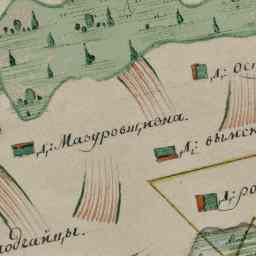 д: Ос
д: Мазуровщизна.
д: вымск
д: ро
лодчайцы.